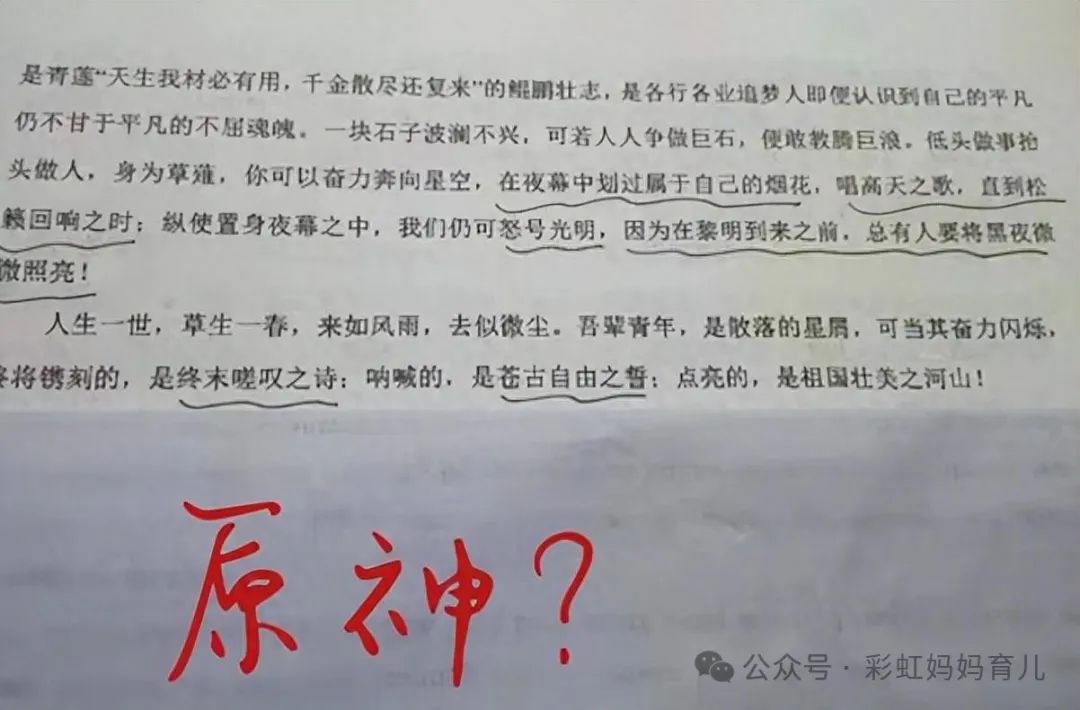 是青莲“天生我材必有用，千金散尽还复来”的鲲鹏壮志，是各行各业追梦人即便认识到自己的平凡
仍不甘于平凡的不屈魂魄。一块石子波澜不兴，可若人人争做巨石，便敢教腾巨浪。低头做事抬
头做人，身为草薤，你可以奋力奔向星空，在夜幕中划过属于自己的烟花，唱高天之歌，直到松
籁回响之时；纵使置身夜幕之中，我们仍可怒号光明，因为在黎明到来之前，总有人要将黑夜微
微照亮！
人生一世，草生一春，来如风雨，去似微尘。吾辈青年，是散落的星屑，可当其奋力闪烁，
终将镌刻的，是终末嗟叹之诗；呐喊的，是苍古自由之誓；点亮的，是祖国壮美之河山！
原神？
公众号·彩虹妈妈育儿